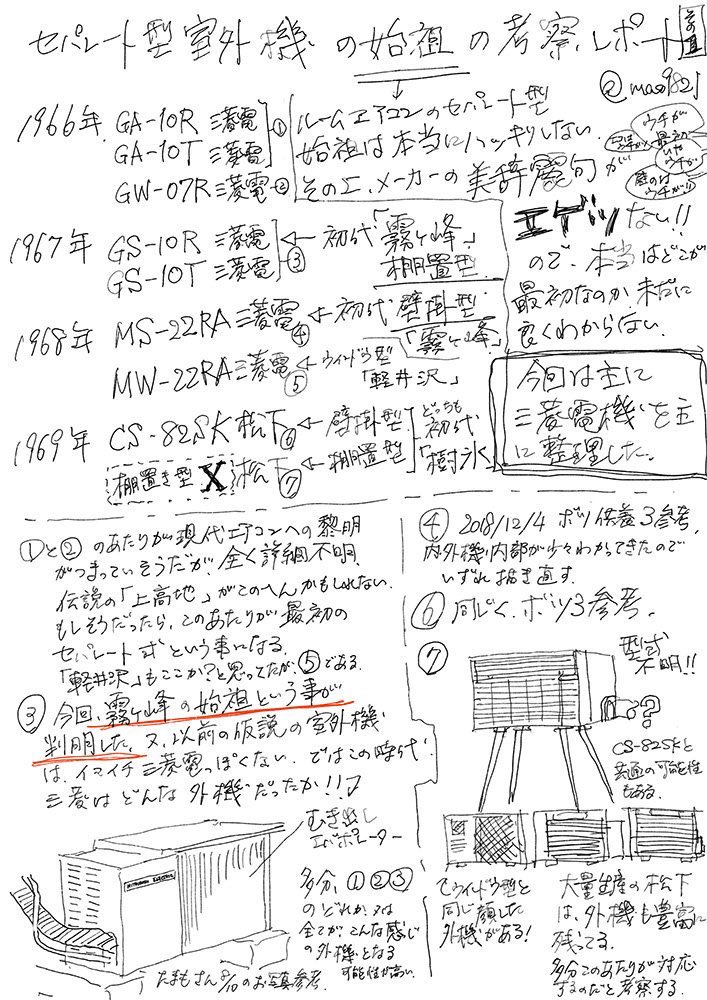 セパレート型室外機の始祖の考察レポート
その
1966年 GA-10R 三菱電
GA-10T 三菱電 ①
GW-07R 三菱電 ②
1967年 GS-10R 三菱電 ← 初代「霧ヶ峰」
GS-10T 三菱電 ③ 棚置型
1968年 MS-22RA 三菱電 ④ ← 初代 壁掛型
「霧ヶ峰」
MW-22RA 三菱電 ⑤ ← ウインドウ型
「軽井沢」
1969年 CS-82SK 松下 ⑥ ← 壁掛型 どっちも
棚置き型 X 松下 ⑦ ← 棚置型 初代
「樹氷」
ルームエアコンのセパレート型
始祖は本当にハッキリしない。
その上、メーカーの美辞麗句が
ウチが
最初
いや
ウチが
壁のは
ウチが
エゲツない!!
ので、本当はどこが
最初なのか未だに
良くわからない。
今回は主に
三菱電機を主
に整理した。
①と②のあたりが現代エアコンへの黎明
がつまっていそうだが、全く詳細不明。
伝説の「上高地」がこのへんかもしれない。
もしそうだったら、このあたりが最初の
セパレート式という事になる。
「軽井沢」もここか?と思ってたが、⑤である。
③今回、霧ヶ峰の始祖という事が
判明した。又、以前の仮説の室外機
は、イマイチ三菱電っぽくない。ではこの時代
三菱はどんな外機だったか!!
むき出し
エバポレーター
MITSUBISHI ELECTRIC
多分、①②③
のどれか、又は
全てが、こんな感じ
の外機となる
可能性が高い
たまもさん8/10のお写真参考
④ 2018/12/4 ボツ供養3参考。
内外機、内部が少々わかってきたので
いずれ描き直す。
⑥ 同じく、ボツ3参考。
⑦
型式
不明!!
??
CS-82SKと
共通の可能性
もある。
ウインドウ型と
同じ顔した
外機がある!
大量生産の松下
は、外機も豊富に
残ってる。
多分このあたりが対応
するのだと考察する。